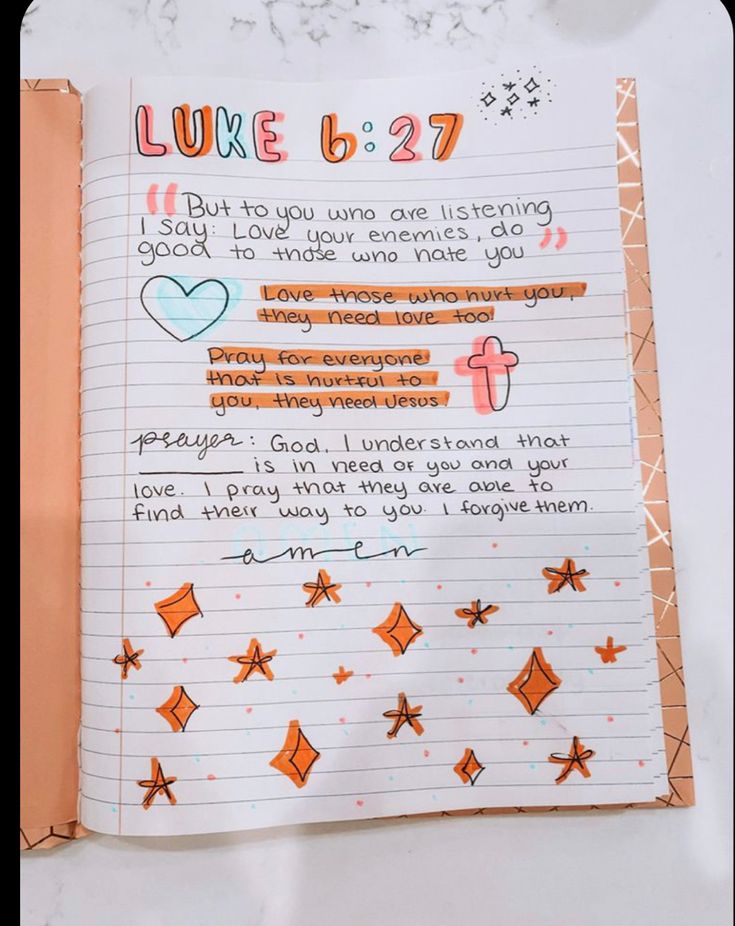 LUKE 6:27
"But to you who are listening
I say: Love your enemies, do
good to those who hate you"
Love those who hurt you,
they need love too!
Pray for everyone
that is hurtful to
you, they need Jesus!
prayer: God, I understand that
________ is in need of you and your
love. I pray that they are able to
find their way to you. I forgive them.
amen